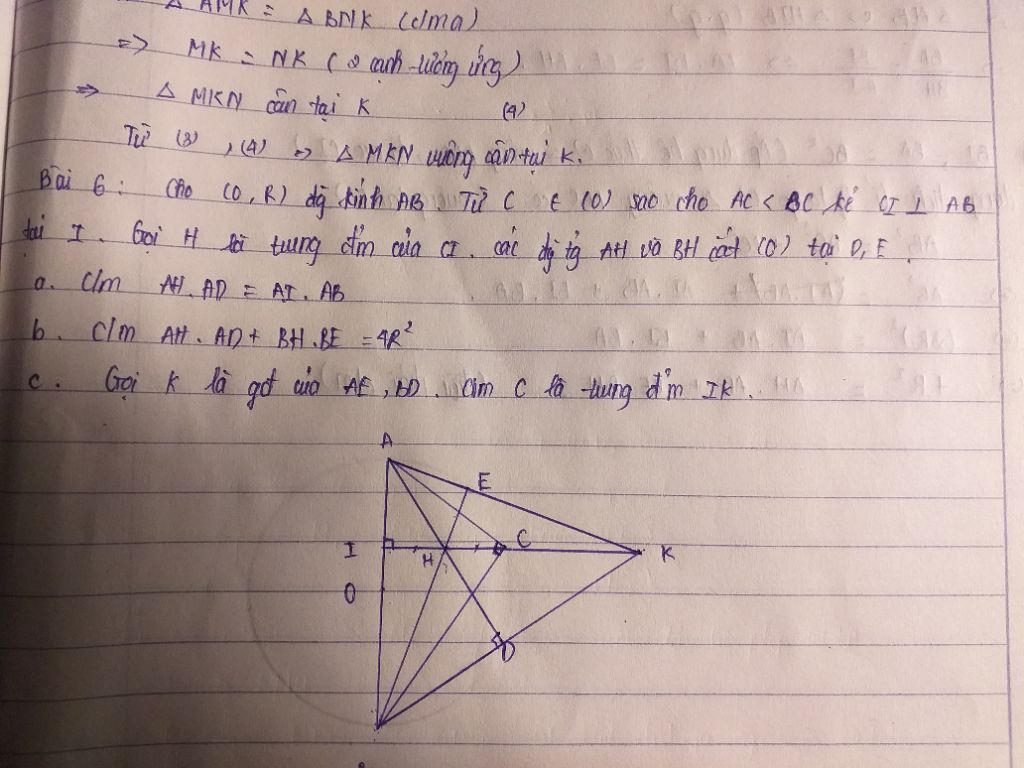 △ AMK = △ BNK (cma)
=> MK = NK (2 cạnh tương ứng)
=> △ MKN cân tại K (4)
Từ (3), (4) => △ MKN vuông cân tại K.
Bài 6: Cho (O, R) đg kính AB. Từ C ∈ (O) sao cho AC < BC kẻ CI ⊥ AB
tại I. Gọi H là trung điểm của CI. các đg tg AH và BH cắt (O) tại D, E.
a. C/m AH.AD = AI.AB
b. C/m AH.AD + BH.BE = 4R²
c. Gọi K là gđ của AE, BD. C/m C là trung đ'm IK.
A
E
I
H
C
K
O
D